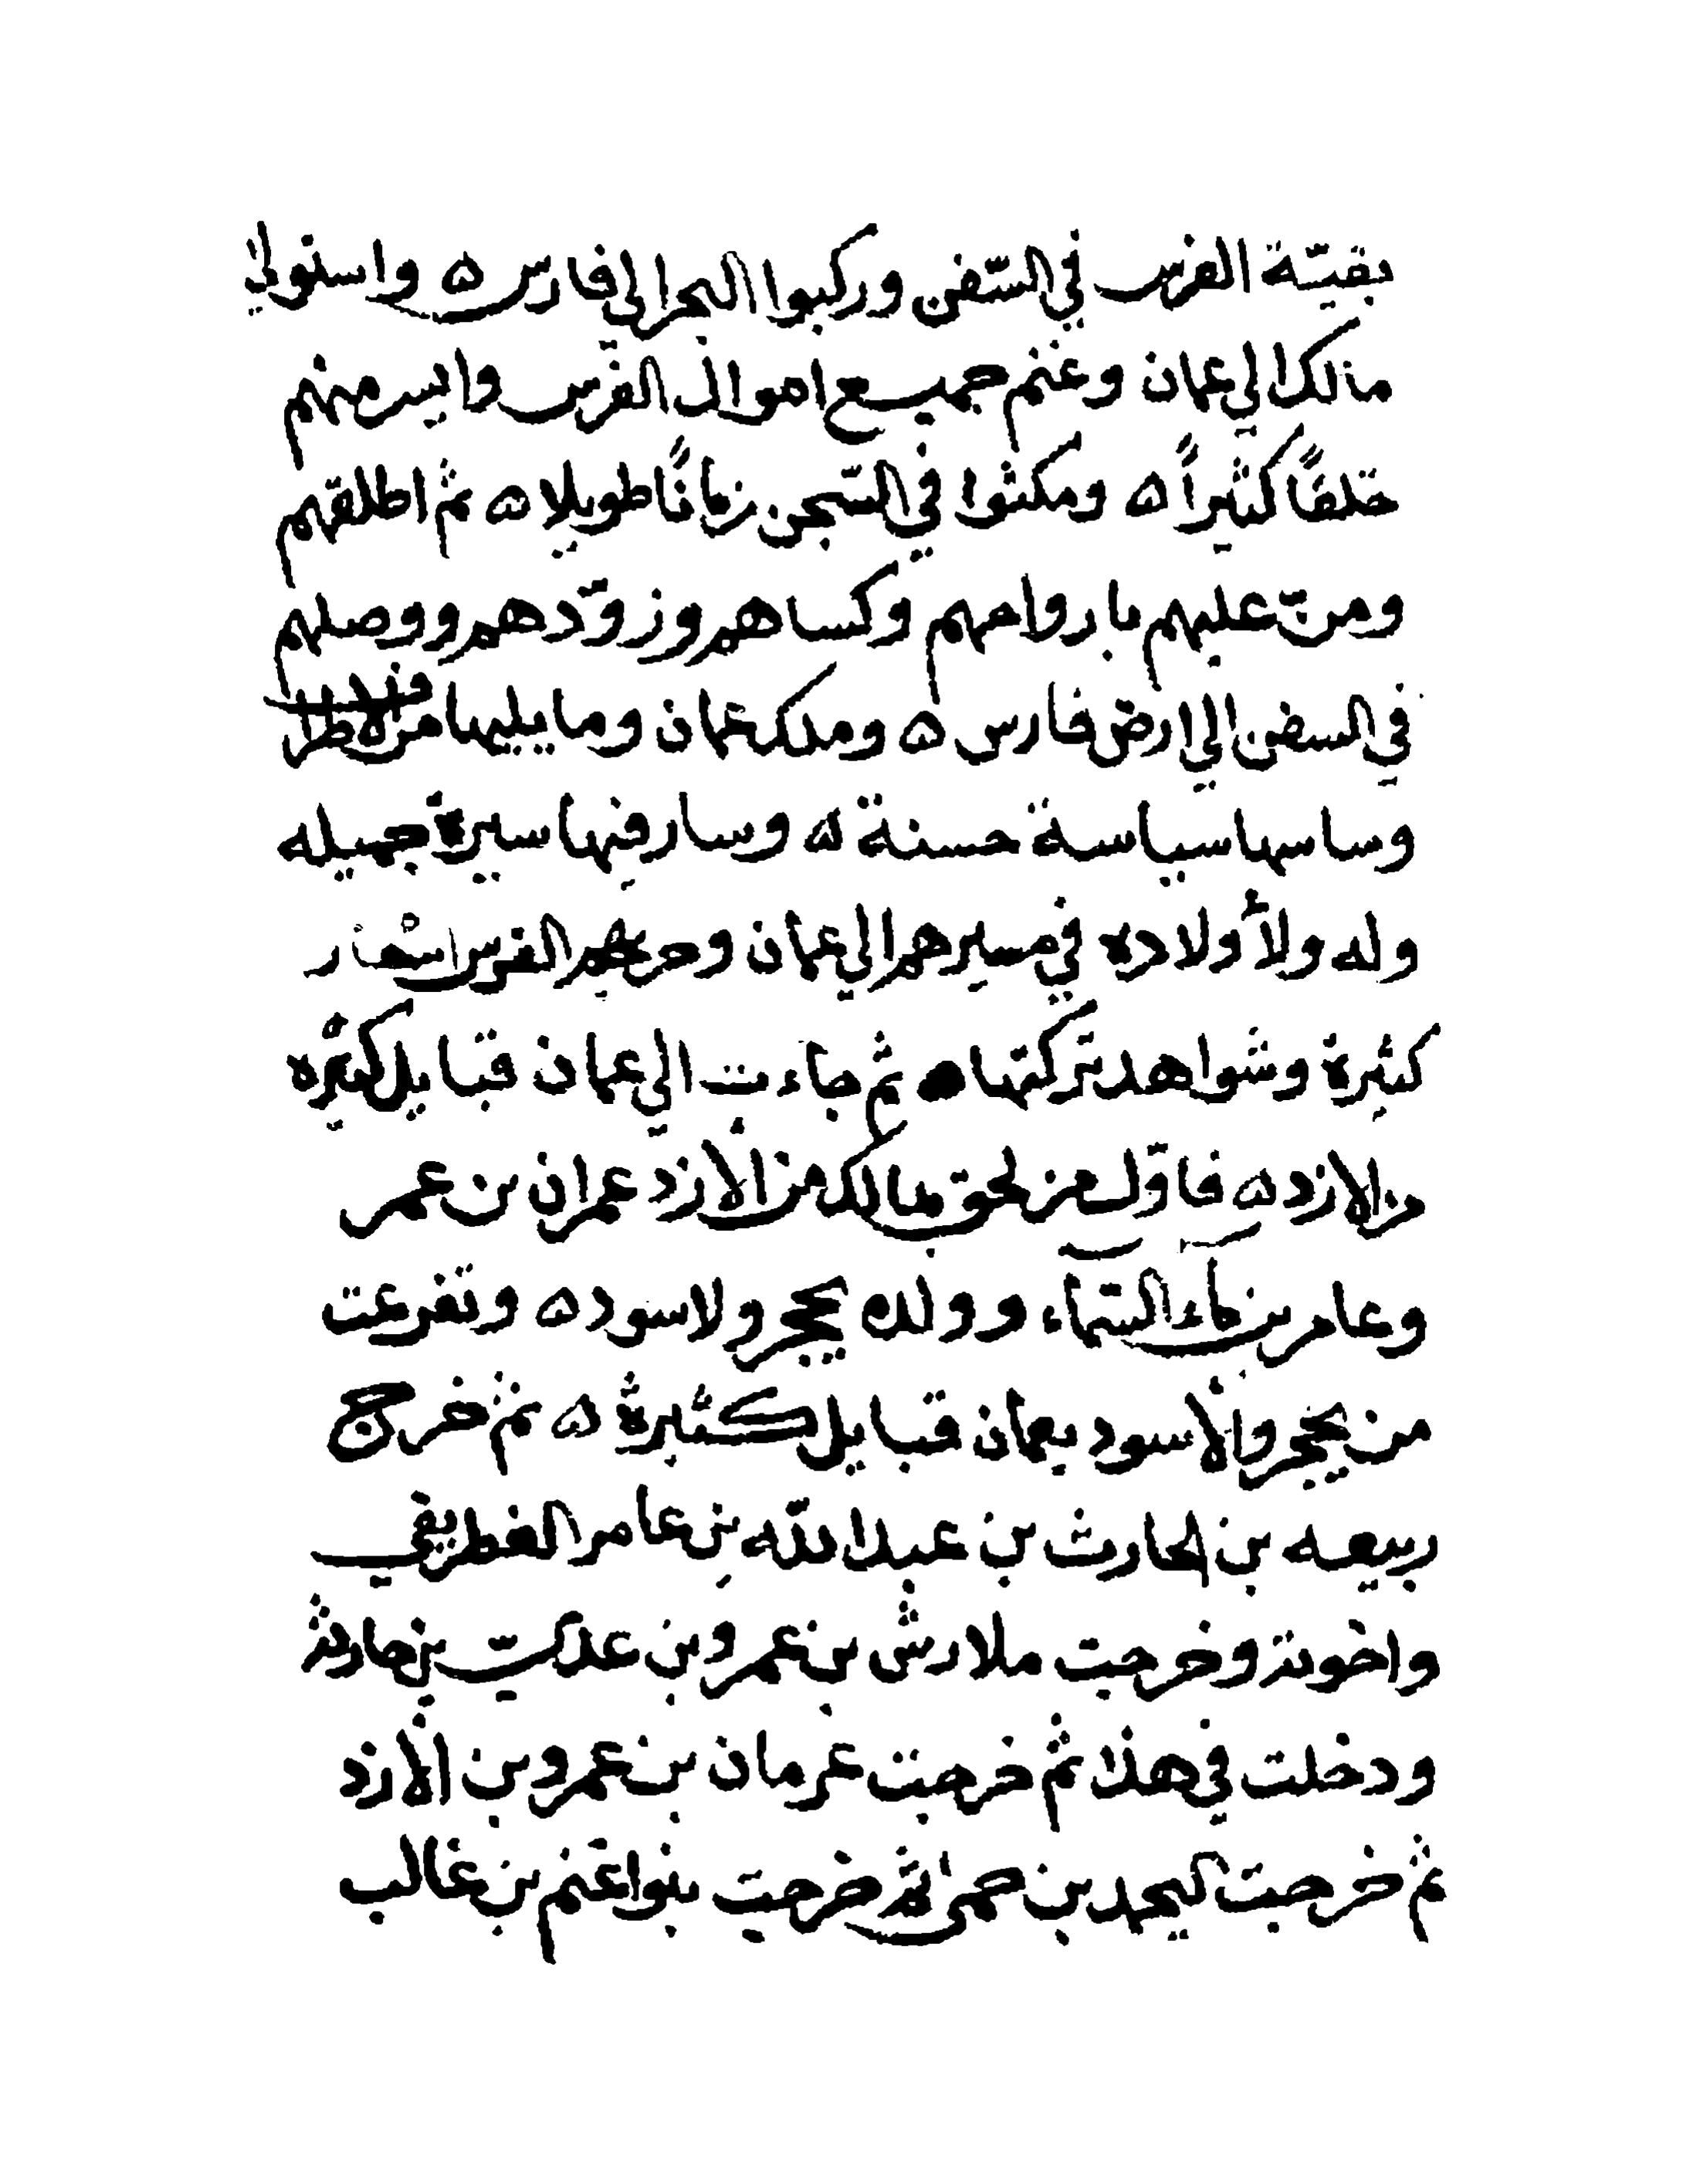 بقيّة الفرس في السّفن وركبوا البحر الي فارس ۵ واستولي
مالك الي عمان وغنم جميع اموال الفرس واسر منهم
خلقًا كثيرًا ۵ ومكثوا في السّجن زمانًا طويلا ۵ ثم اطلقهم
ومنّ عليهم بارواحهم وكساهم وزوّدهم ووصلهم
في السفن الي ارض فارس ۵ وملك عمان وما يليها من الاطراف
وساسها سياسة حسنة ۵ وسار فيها سيرة جميله
وله ولأولاده في مسيرهم الي عمان وحربهم الفرس اشعار
كثيرة وشواهد تركتها ثم جاءت الي عمان قبايل كثيره
من الازد ۵ فاوّل من لحق بمالك من الازد عمران بن عمر
وعامر بن ماء السّماء وولده يحجر ولاسود ۵ وتفرعت
من يحجر والأسود بعمان قبايل كثيرة ۵ ثم خرج
ربيعه بن الحارث بن عبد الله بن عامر الغطريفي
واخوته وخرجت ملادرش بن عمرو بن عدي بن حارثه
ودخلت في هذا ثم خرجت عرمان بن عمرو بن الأزد
ثم خرجت اليحمد بن حمى ثم خرجت بنوا غنم بن غالب